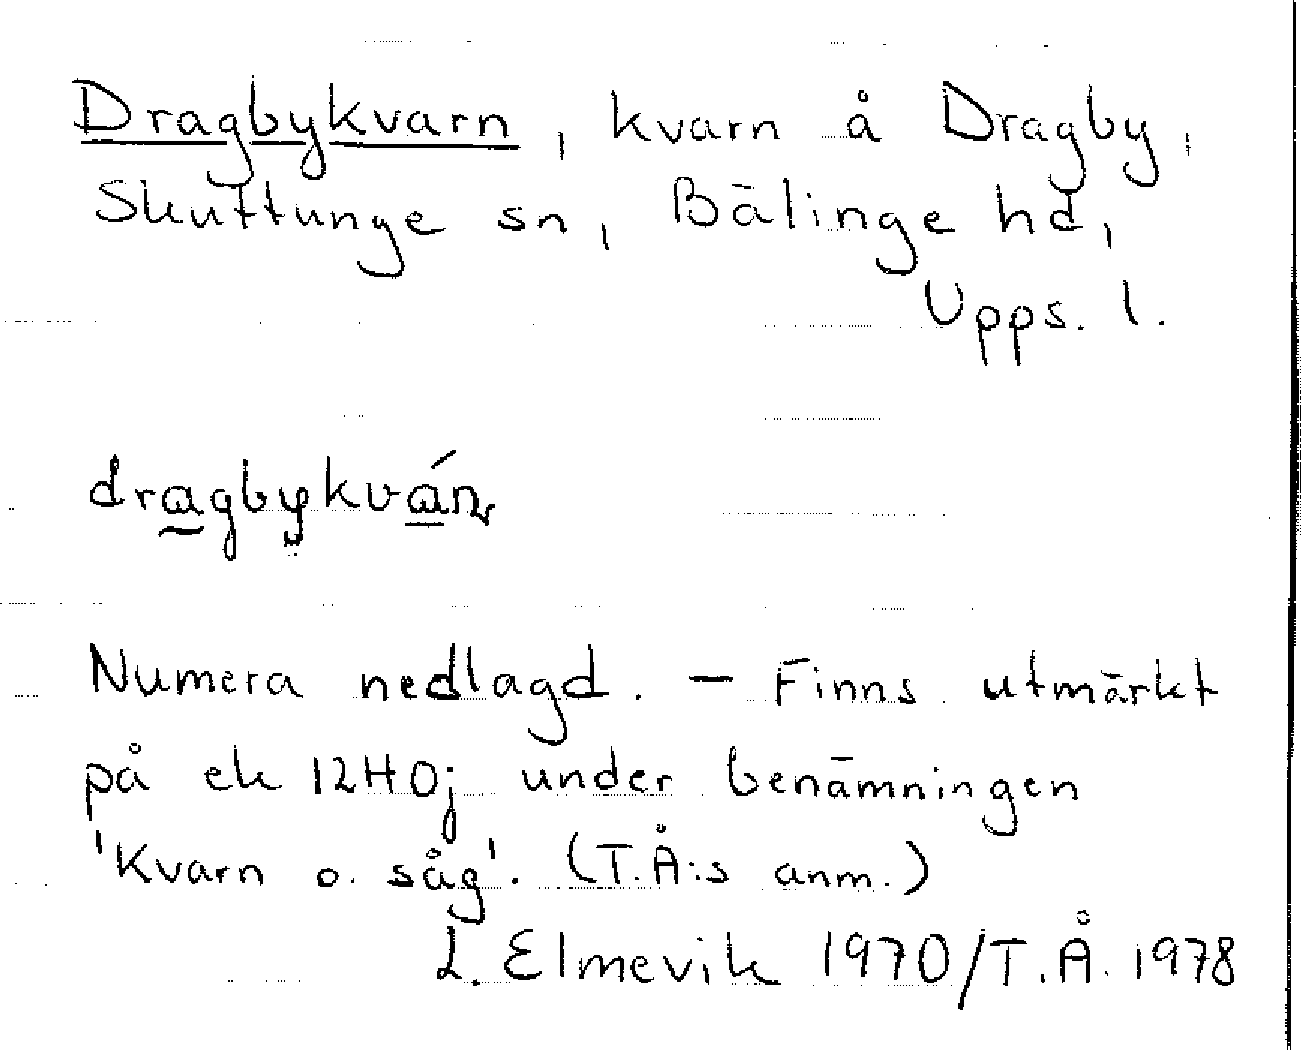 Dragbykvarn, kvarn å Dragby,
Skuttunge sn, Bälinge hd,
Upps. l.
dragbykván
Numera nedlagd. — Finns utmärkt
på ek 12H0j under benämningen
'Kvarn o. såg'. (T.Å:s anm.)
L. Elmevik 1970/T.Å. 1978